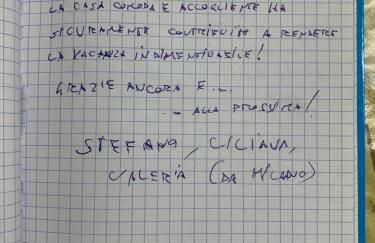 LA CASA COMODA E ACCOGLIENTE HA
SICURAMENTE CONTRIBUITO A RENDERE
LA VACANZA INDIMENTICABILE!
GRAZIE ANCORA E...
... ALLA PROSSIMA!
STEFANO, LILIANA,
VALERIA (DA MILANO)